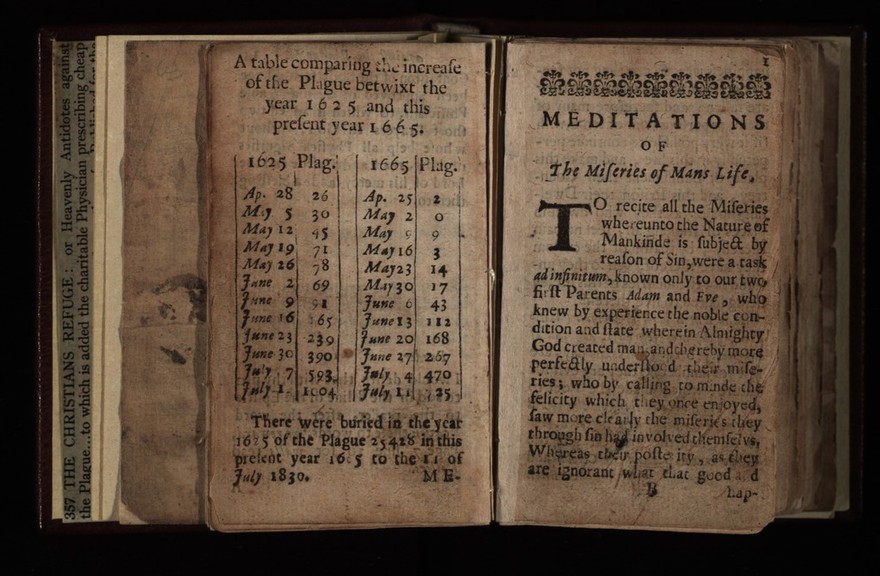 357 THE CHRISTIANS REFUGE: or Heavenly Antidotes against
the Plague...to which is added the charitable Physician prescribing cheap
A table comparing the increaſe
of the Plague betwixt the
year 1625 and this
preſent year 1665.
1625 Plag. 1665 Plag.
Ap. 28 26 Ap. 25 2
May 5 30 May 2 0
May 12 45 May 9 9
May 19 71 May 16 3
May 26 78 May 23 14
June 2 69 May 30 17
June 9 91 June 6 43
June 16 165 June 13 112
June 23 239 June 20 168
June 30 390 June 27 267
July 7 593 July 4 470
July 1004 July 11 725
There were buried in the year
1625 of the Plague 25428 in this
preſent year 1665 to the 11 of
July 1830. ME-
1
MEDITATIONS
OF
The Miſeries of Mans Life.
TO recite all the Miſeries
whereunto the Nature of
Mankinde is ſubject by
reaſon of Sin, were a task
ad infinitum, known only to our two
firſt Parents Adam and Eve, who
knew by experience the noble con-
dition and ſtate wherein Almighty
God created man, and thereby more
perfectly underſtood their miſe-
ries; who by calling to minde the
felicity which they once enjoyed,
ſaw more clearly the miſeries they
through ſin had involved themſelvs,
Whereas their poſterity, as they
are ignorant what that good and
B hap-